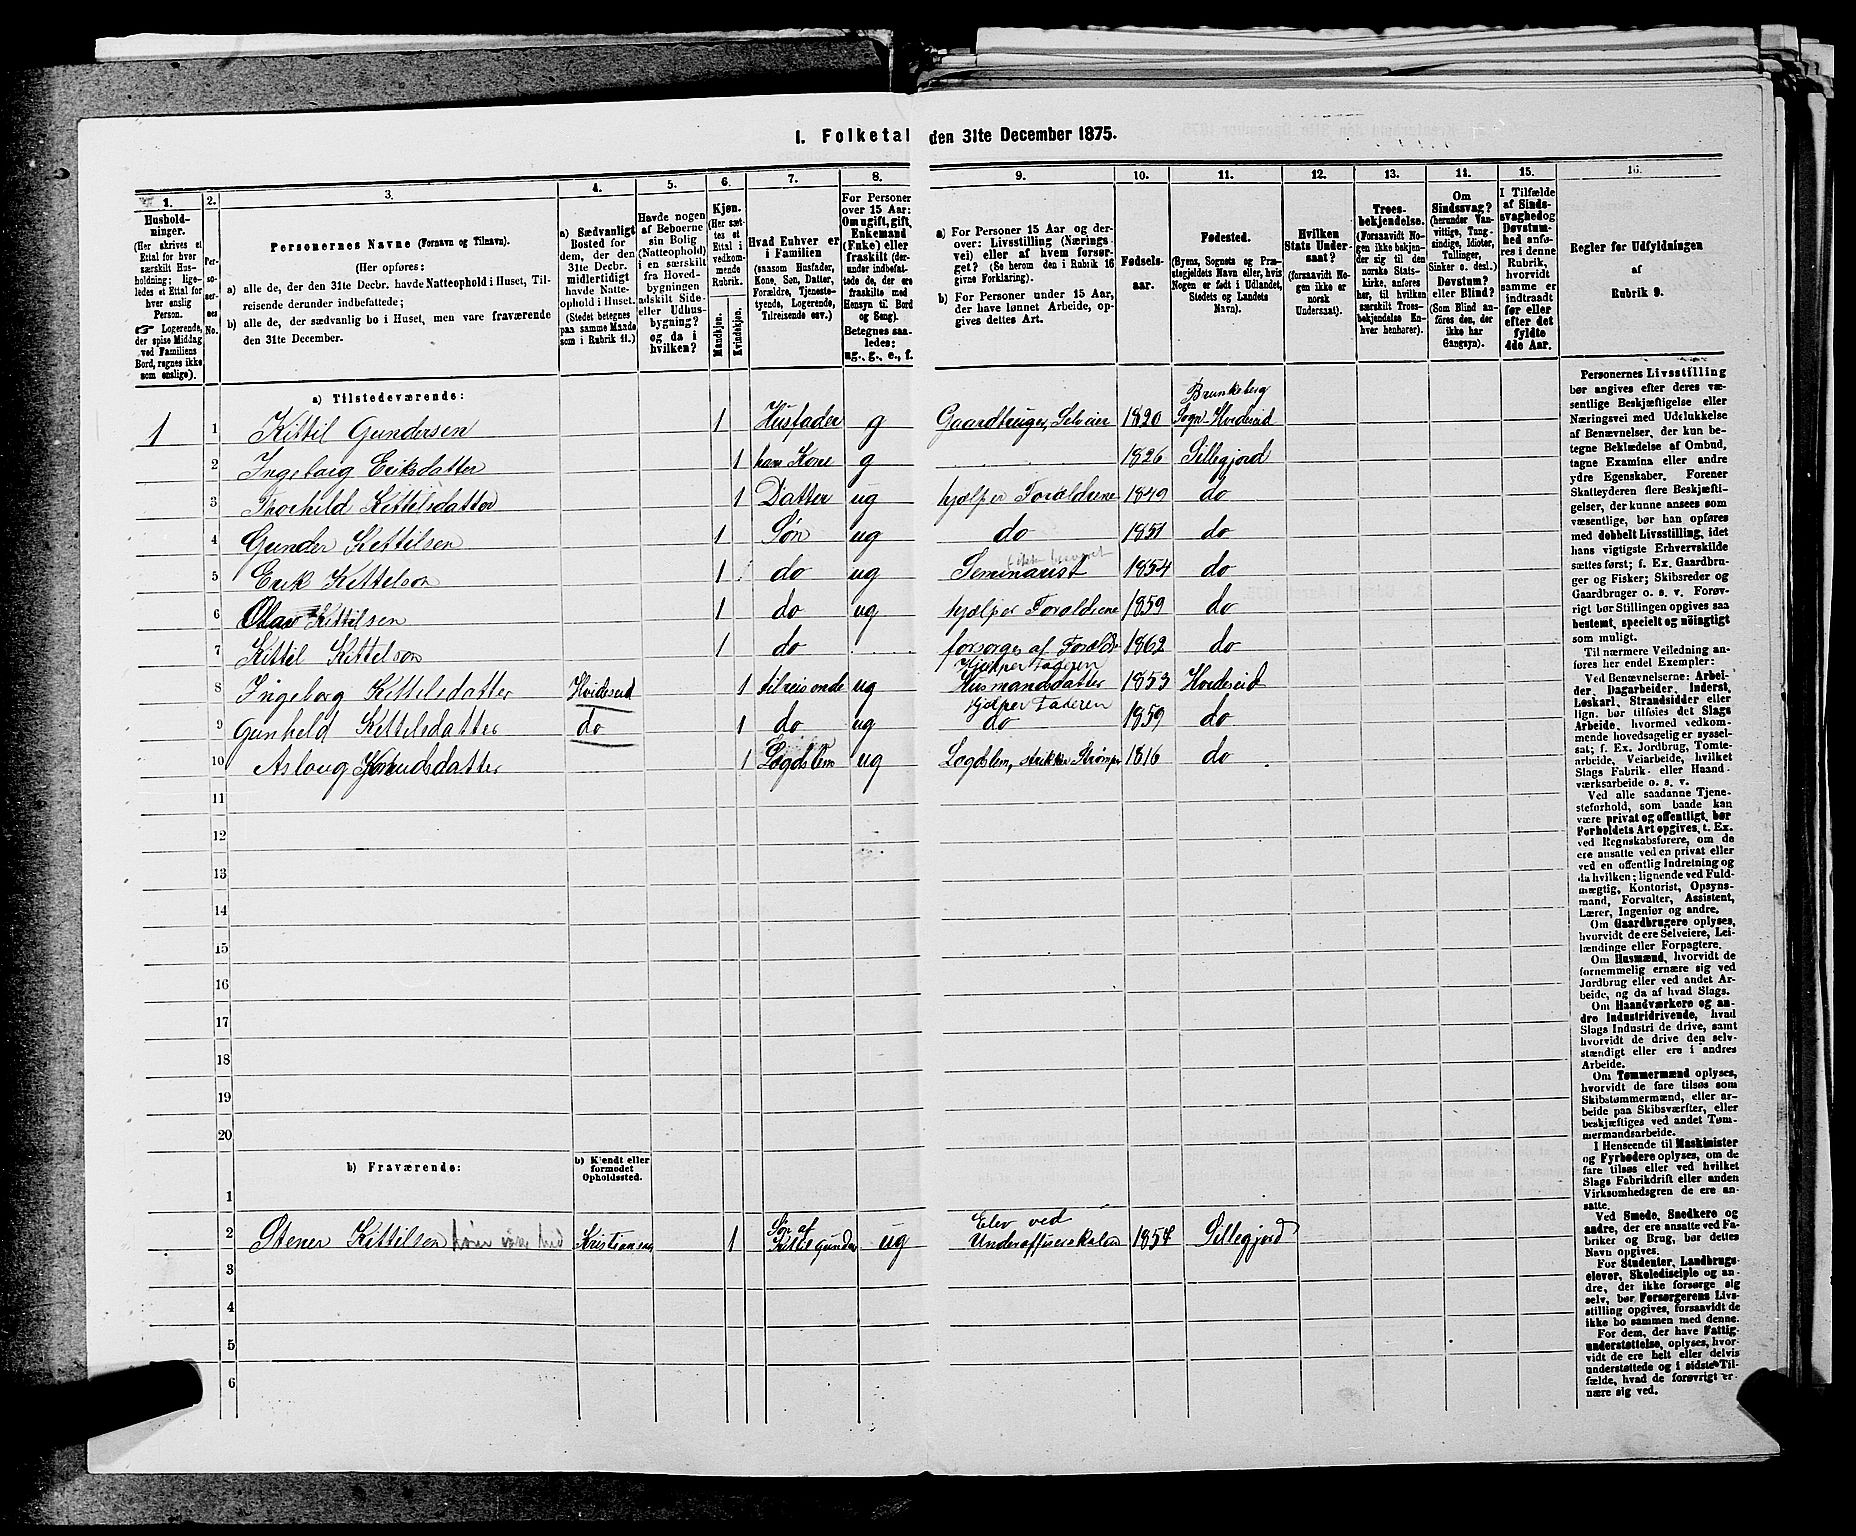 1. Folketal den 31te December 1875.
1. 2. 3. 4. 5. 6. 7. 8. 9. 10. 11. 12. 13. 14. 15. 16.
Hushold-
ninger.
(Her skrives et
Ettal for hver
særskilt Hus-
holdning; lige-
ledes et Ettal for
hver enslig
Person.
☞ Logerende,
der spise Middag
ved Familiens
Bord, regnes ikke
som enslige).
Personernes No.
Personernes Navne (Fornavn og Tilnavn).
(Her opføres:
a) alle de, der den 31te Decbr. havde Natteophold i Huset, Til-
reisende derunder indbefattede;
b) alle de, der sædvanlig bo i Huset, men vare fraværende
den 31te December.
a) Sædvanligt
Bosted for
dem, der den
31te Decbr.
midlertidigt
havde Natte-
ophold i Huset.
(Stedet betegnes
paa samme Maade
som i Rubrik 11.)
Havde nogen
af Beboerne
sin Bolig
(Natteophold)
i en særskilt
fra Hoved-
bygningen
adskilt Side-
eller Udhus-
bygning?
og da i
hvilken?
Kjøn.
(Her sæt-
tes et
Ettal i
vedkom-
mende
Rubrik.
Mandkjøn.
Kvindekjøn.
Hvad Enhver er
i Familien
(saasom Husfader,
Kone, Søn, Datter,
Forældre, Tjeneste-
tyende, Logerende,
Tilreisende osv.)
For Personer
over 15 Aar:
Om ugift, gift,
Enkemand
(Enke) eller
fraskilt (der-
under indbefat-
tede de, der ere
fraskilte med
Hensyn til Bord
og Seng).
Betegnes saa-
ledes:
ug., g., e., f.
a) For Personer 15 Aar og der-
over: Livsstilling (Nærings-
vei) eller af hvem forsør-
get? (Se herom den i Rubrik 16
givne Forklaring).
b) For Personer under 15 Aar,
der have lønnet Arbeide, op-
gives dettes Art.
Fødsels-
aar.
Fødested.
(Byens, Sognets og Præ-
stegjeldets Navn eller, hvis
Nogen er født i Udlandet,
Stedets og Landets
Navn).
Hvilken
Stats Under-
saat?
(forsaavidt No-
gen ikke er
norsk
Undersaat).
Troes-
bekjendelse.
(Forsaavidt No-
gen ikke bekjen-
der sig til den
norske Stats-
kirke, anføres
her, til hvilken
særskilt Troes-
bekjendelse En-
hver henhører).
Om
Sindssvag?
(herunder Van-
vittige, Tung-
sindige, Idioter,
Tullinger,
Sinker o. desl.)
Døvstum?
eller Blind?
(Som Blind an-
føres den, der
ikke har
Gangsyn).
I Tilfælde
af Sinds-
svaghed og
Døvstum-
hed anfø-
res i denne
Rubrik,
hvorvidt
samme er
indtraadt
før eller
efter det
fyldte
4de Aar.
Regler for Udfyldningen
af
Rubrik 9.
a) Tilstedeværende:
1 1 Kittil Gundersen 1 Husfader g Gaardbruger, Selveier 1820 Brunkeberg Sogn Hvideseid
2 Ingeborg Eriksdatter 1 hans Kone g 1826 Sillegjord
3 Thorhild Kittilsdatter 1 Datter ug hjælper Forældrene 1849 do
4 Gunder Kittilsen 1 Søn ug do 1851 do
5 Erik Kittelson 1 do ug Seminarist 1854 do
6 Olav Kittilsen 1 do ug hjælper Forældrene 1859 do
7 Kittil Kittelson 1 do forsørges af Foræld 1862 do
8 Ingeborg Kittelsdatter Hvideseid 1 tilreisende ug Hjelper Faderen Husmandsdatter 1853 Hvideseid
9 Gunheld Kittelsdatter do 1 do ug hjelper Faderen do 1859 do
10 Aslaug Knudsdatter 1 Lægdslem ug Lægdslem, strikker Strømper 1816 do
11
12
13
14
15
16
17
18
19
20
b) Fraværende:
b) Kjendt eller
formodet
Opholdssted.
1
2 Stener Kittilson Kristiansan 1 Søn af Kittil Gunder ug Elev ved Underofficerskolen 1857 Sillegjord
3
4
5
6
Personernes Livsstilling
bør angives efter deres væ-
sentlige Beskjæftigelse eller
Næringsvei med Udelukkelse
af Benævnelser, der kun be-
tegne Beklædelse af Ombud,
tagne Examina eller andre
ydre Egenskaber. Forener
Skatteyderen flere Beskjæfti-
gelser, der kunne ansees som
væsentlige, bør han opføres
med dobbelt Livsstilling, idet
hans vigtigste Erhvervskilde
sættes først; f. Ex. Gaardbru-
ger og Fisker; Skibsreder og
Gaardbruger o. s. v. Forøv-
rigt bør Stillingen opgives saa
bestemt, specielt og nöiagtigt
som muligt.
Til nærmere Veiledning an-
føres her endel Exempler:
Ved Benævnelserne: Arbei-
der, Dagarbeider, Inderst,
Løskarl, Strandsidder eller
lign. bør tilføies det Slags
Arbeide, hvormed vedkom-
mende hovedsagelig er syssel-
sat; f. Ex. Jordbrug, Tomte-
arbeide, Veiarbeide, hvilket
Slags Fabrik- eller Haand-
værksarbeide o. s. v.
Ved alle saadanne Tjene-
steforhold, som baade kan
være privat og offentligt, bør
Forholdets Art opgives, t. Ex.
ved Regnskabsførere, om de
ere ansatte ved en privat eller
ved en offentlig Indretning og
da hvilken; lignende ved Fuld-
mægtig, Kontorist, Opsyns-
mand, Forvalter, Assistent,
Lærer, Ingeniør og andre.
Om Gaardbrugere oplyses,
hvorvidt de ere Selveiere, Lei-
lændinge eller Forpagtere.
Om Husmænd, hvorvidt de
fornemmelig ernære sig ved
Jordbrug eller ved andet Ar-
beide, og da af hvad Slags.
Om Haandværkere og an-
dre Industridrivende, hvad
Slags Industri de drive, samt
hvorvidt de drive den selv-
stændigt eller ere i andres
Arbeide.
Om Tømmermænd oplyses,
hvorvidt de fare tilsøs som
Skibstømmermænd, eller ar-
beide paa Skibsværfter, eller
beskjæftiges ved andet Tøm-
mermandsarbeide.
I Henseende til Maskinister
og Fyrbødere oplyses, om de
fare tilsøs eller ved hvilket
Slags Fabrikdrift eller anden
Virksomhedsgren de ere an-
satte.
Ved Smede, Snedkere og
andre, der ere ansatte ved Fa-
briker og Brug, bør dettes
Navn opgives.
For Studenter, Landbrugs-
elever, Skoledisciple og an-
dre, der ikke forsørge sig
selv, bør Forsørgerens Livs-
stilling opgives, forsaavidt de
ikke bo sammen med denne.
For dem, der have Fattig-
understøttelse, oplyses, hvor-
vidt de ere helt eller delvis
understøttede og i sidste Til-
fælde, hvad de forøvrigt er-
nære sig ved.